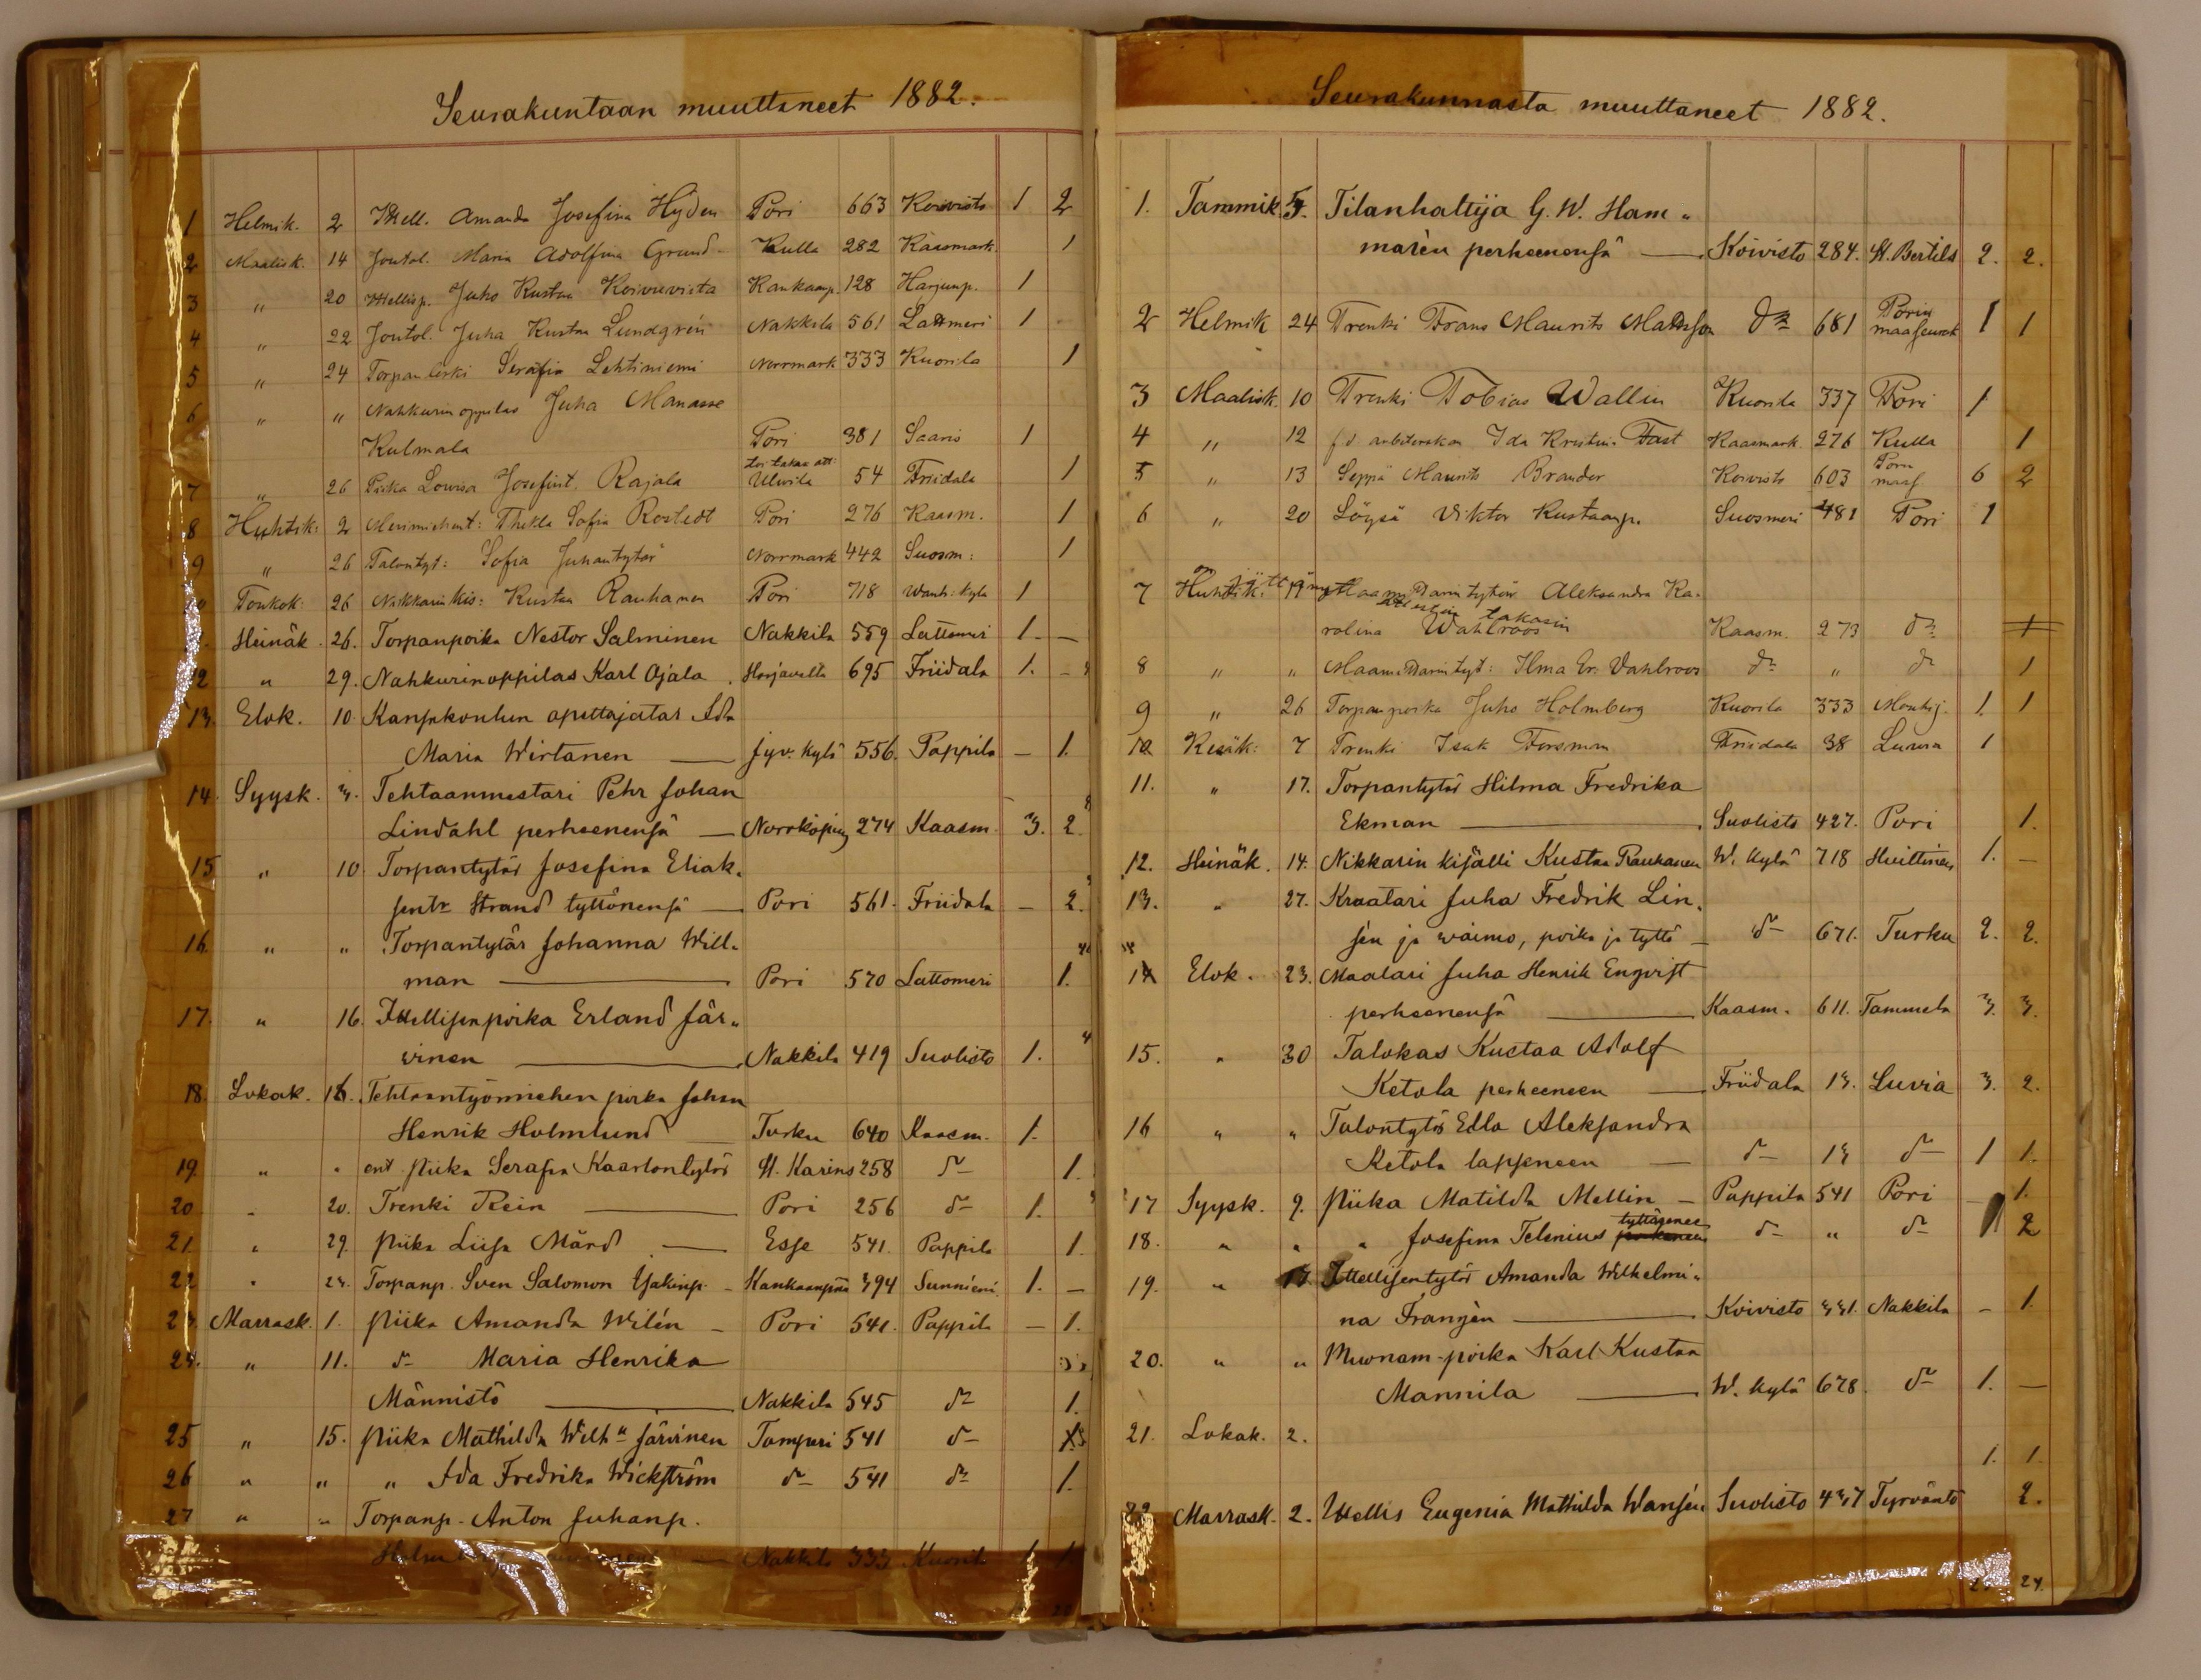 Seurakuntaan muuttaneet 1882.
1 Helmik. 2 Ittell. Amanda Josefina Hyden Pori 663 Koivisto 1 2
2 Maalisk. 14 Joutol. Maria Adolfina Grund Kulla 282 Kaasmark. 1
3 " 20 Ittellisp. Juho Kustaa Koivuvista Kankaanp. 128 Harjunp. 1
4 " 22 Joutol. Juha Kustaa Lundgrén Nakkila 561 Lattmeri 1
5 " 24 Torpan leski Serafia Lehtiniemi Norrmark 333 Kuorila 1
6 " " Nahkurinoppilas Juha Manasse
Kulmala Pori 381 Saaris 1
7 " 26 Piika Lovisa Josefint. Rajala Ulwila 54 Friidala 1
8 Huhtik: 2 Merimiehent: Thekla Sofia Rostedt Pori 276 Kaasm. 1
9 " 26 Talontyt: Sofia Juhantytär Norrmark 442 Suosm: 1
Toukok: 26 Nikkarin kis: Kustaa Rauhanen Pori 718 Wanh: kylä 1
Heinäk. 26. Torpanpoika Nestor Salminen Nakkila 559 Lattomeri 1. —
2 " 29. Nahkurinoppilas Karl Ojala. Harjavalta 695 Friidala 1. —
13. Elok. 10. Kansakoulun opettajatar Ida
Maria Wirtanen — Jyv. kylä 556. Pappila — 1.
14. Syysk. 3. Tehtaanmestari Pehr Johan
Lindahl perheenensä — Norrköping 274 Kaasm. 3. 2.
15 " 10 Torpantytär Josefina Eliak.
sentr Strand tyttönensä — Pori 561. Friidala — 2.
16. " " Torpantytär Johanna Will-
man — Pori 570 Lattomeri 1.
17. " 16. Ittellisenpoika Erland Jär-
vinen — Nakkila 419 Suolisto 1.
18. Lokak. 16. Tehtaantyömiehen poika Johan
Henrik Holmlund — Turku 640 Kaasm. 1.
19. " " ent. piika Serafia Kaarlontytär St. Karins 258 d:o 1.
20 " 20. Trenki Rein — Pori 256 d:o 1.
21 " 29. piika Liisa Mård — Esse 541. Pappila 1.
22 " 23. Torpanp. Sven Salomon Yakinp. — Kankaanpää 394 Sunniemi 1. —
23 Marrask. 1. piika Amanda Wilén — Pori 541. Pappila — 1.
24. " 11. d:o Maria Henrika
Männistö — Nakkila 545 d:o 1.
25 " 15. piika Mathilda Wilh:a Järvinen Tampere 541 d:o 1.
26 " " " Ida Fredrika Wickström d:o 541 d:o 1.
27 " " Torpanp. Anton Juhanp.
— Nakkila 333 Kuorila 1 1
Seurakunnasta muuttaneet 1882.
1. Tammik. 5. Tilanhaltija G. W. Ham-
marèn perheenensä — Koivisto 284. St. Bertils 2. 2.
2 Helmik 24 Trenki Frans Maurits Mattsson d:o 681 Porin maaseurak 1 1
3 Maalisk. 10 Trenki Tobias Wallin Kuorila 337 Pori 1
4 " 12 Ida Kristina Fast Kaasmark. 276 Kulla 1
5 " 13 Seppä Maurits Brander Koivisto 603 Porin maas 6 2
6 " 20 Löysä Viktor Kustaanp. Suosmeri 481 Pori 1
7 Huhtik: 19 Maamittarin tytär Aleksandra Ka-
rolina Wahlroos takasin Kaasm. 273 d:o 1
8 " " Maamittarin tyt: Ilma Er. Vahlroos d:o " d:o 1
9 " 26 Torpanpoika Juho Holmberg Kuorila 333 Mouhij. 1. 1
10 Kesäk: 7 Trenki Isak Forsman Friidala 38 Luvia 1
11. " 17. Torpantytär Hilma Fredrika
Ekman — Suolisto 427. Pori 1.
12. Heinäk. 14. Nikkarin kisälli Kustaa Rauhanen W. kylä 718 Huittinen 1. —
13. " 27. Kraatari Juha Fredrik Lin-
sén ja waimo, poika ja tyttö — d:o 671. Turku 2. 2.
14 Elok. 23. Maalari Juha Henrik Engvist
perheenensä — Kaasm. 611. Tammela 3. 3.
15. " 30 Talokas Kustaa Adolf
Ketola perheeneen — Friidala 13. Luvia 3. 2.
16 " " Talontytär Edla Aleksandra
Ketola lapseneen — d:o 13 d:o 1 1.
17 Syysk. 9. piika Matilda Mellin — Pappila 541 Pori — 1.
18. " " " Josefina Telenius tyttärenee d:o " d:o 2
19. " Ittellisentytär Amanda Wilhelmi-
na Frangèn — Koivisto 331. Nakkila — 1.
20. " " Muonam-poika Karl Kustaa
Mannila — W. kylä 678. d:o 1. —
21. Lokak. 2.
1. 1.
22. Marrask. 2. Ittellis Eugenia Mathilda Wansén Suolisto 437 Tyrväntö 2.
24.